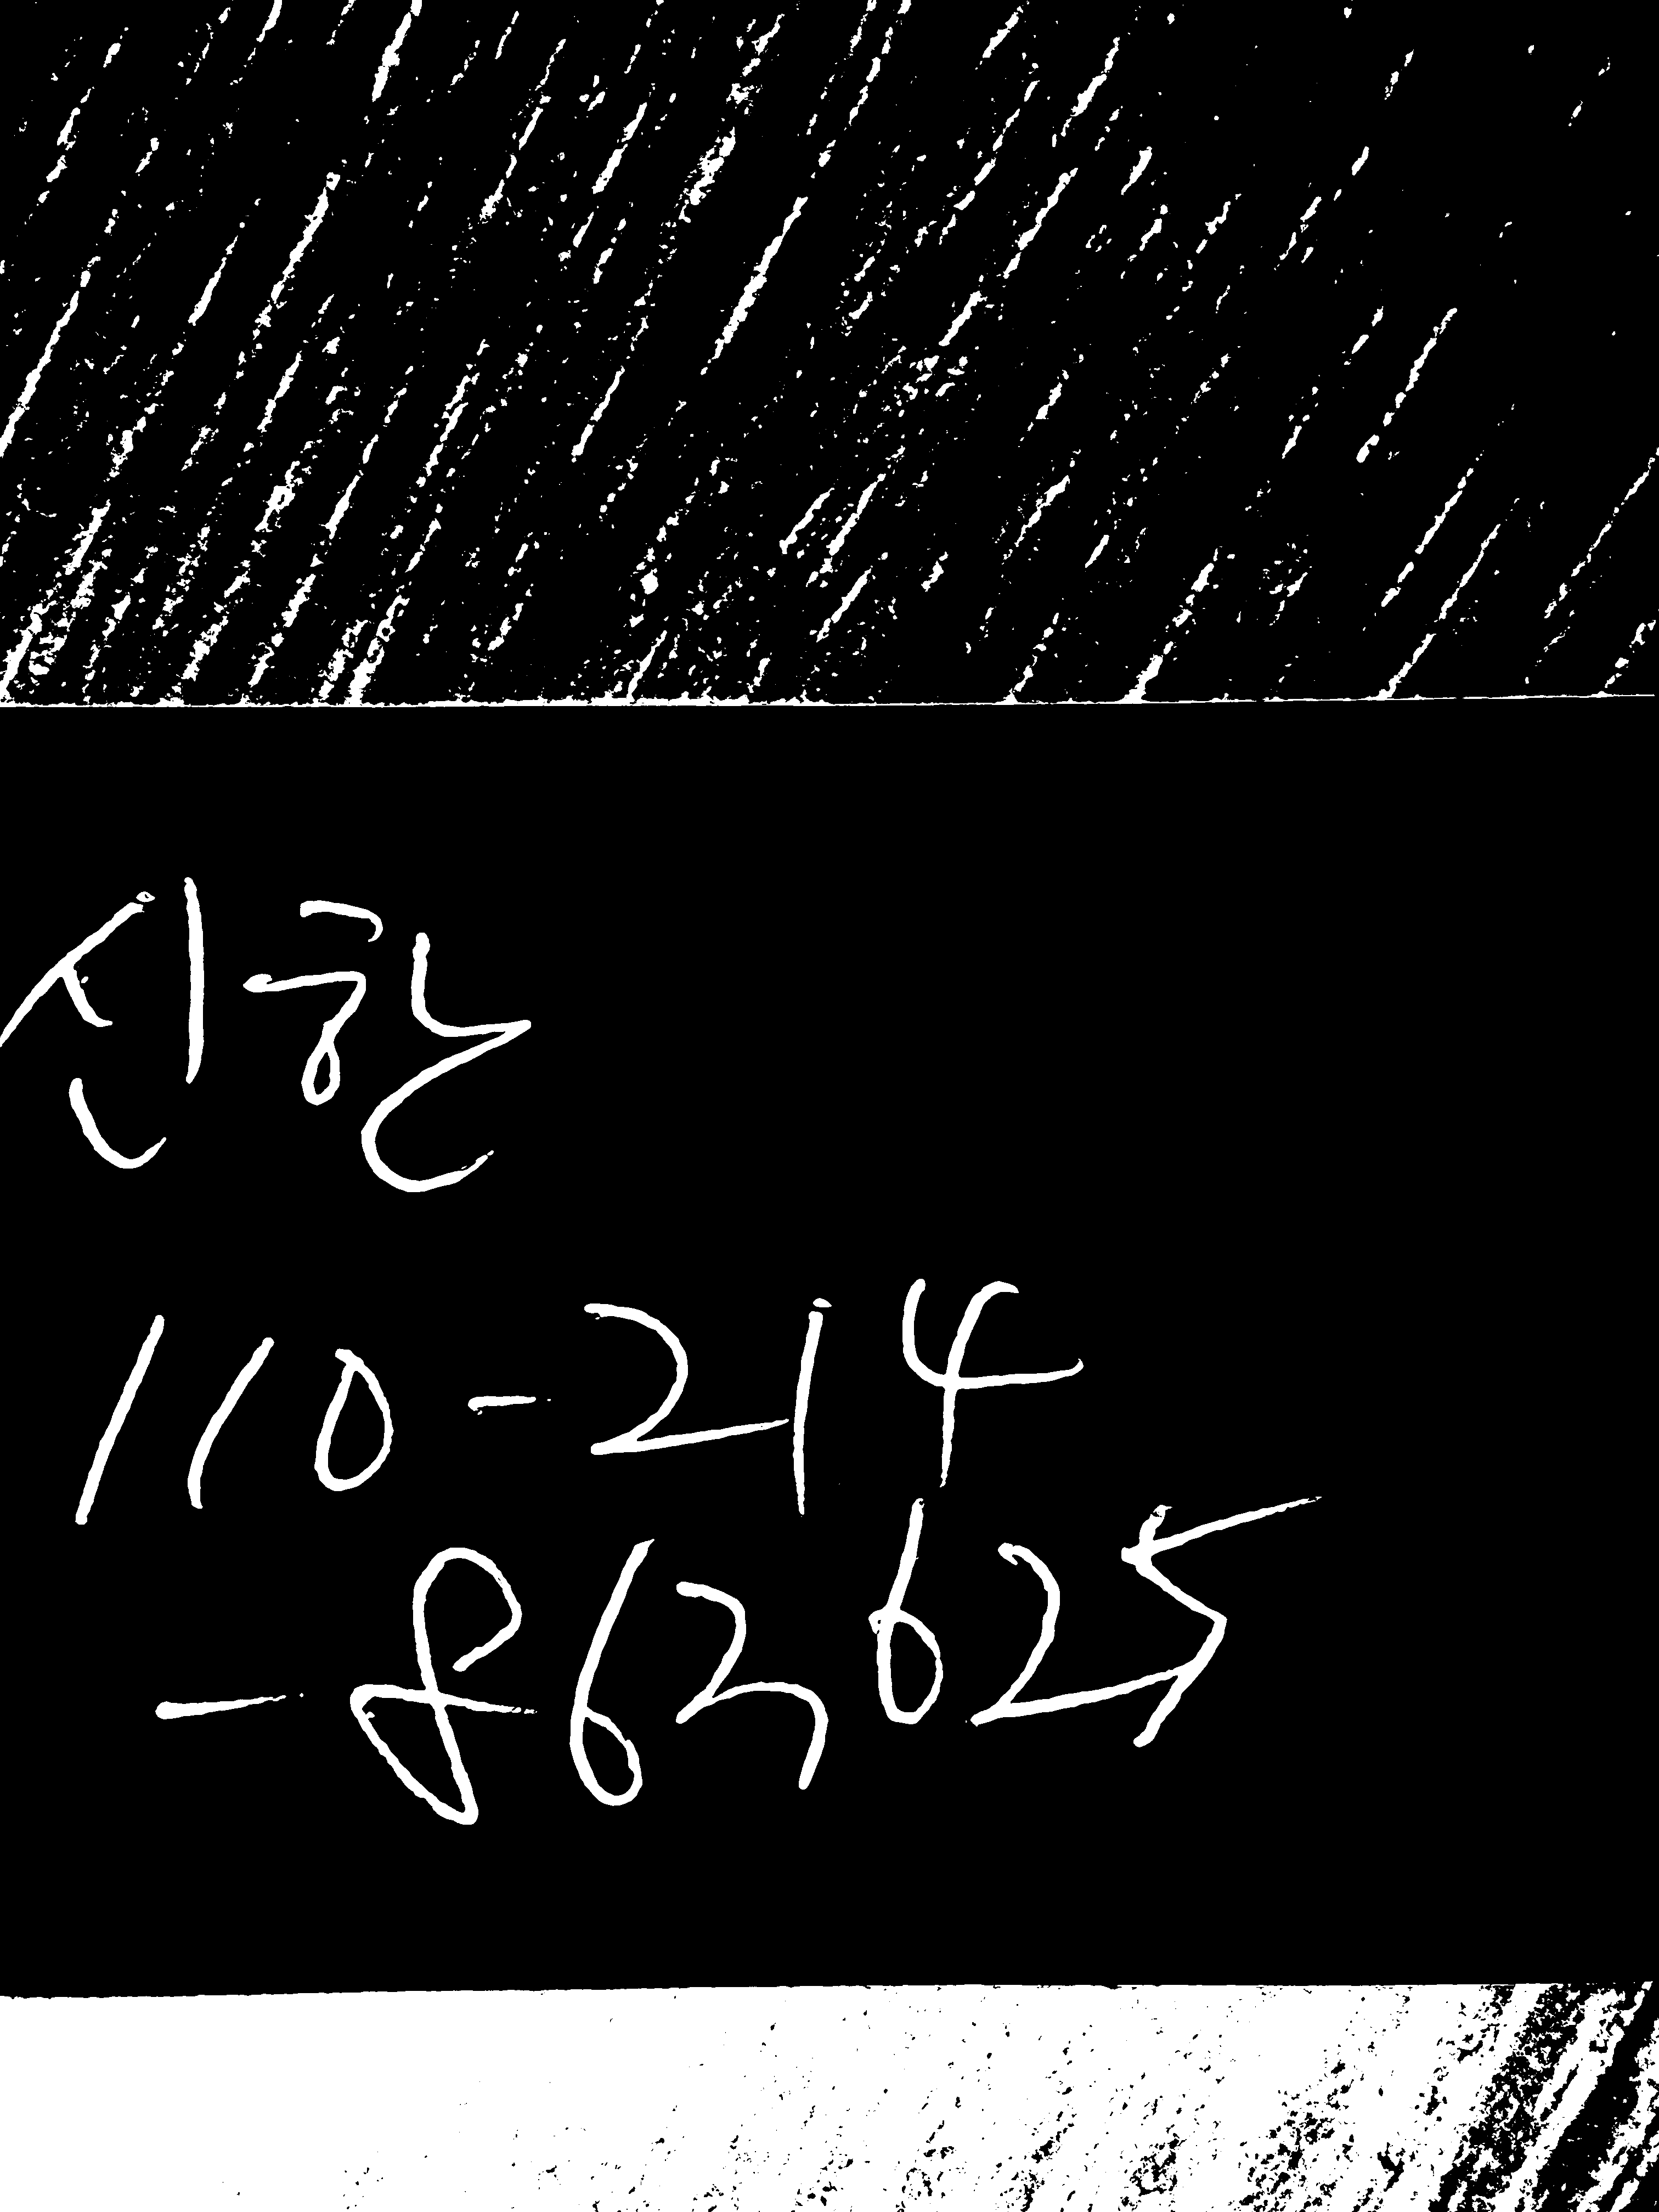 신한
110-214
-863625